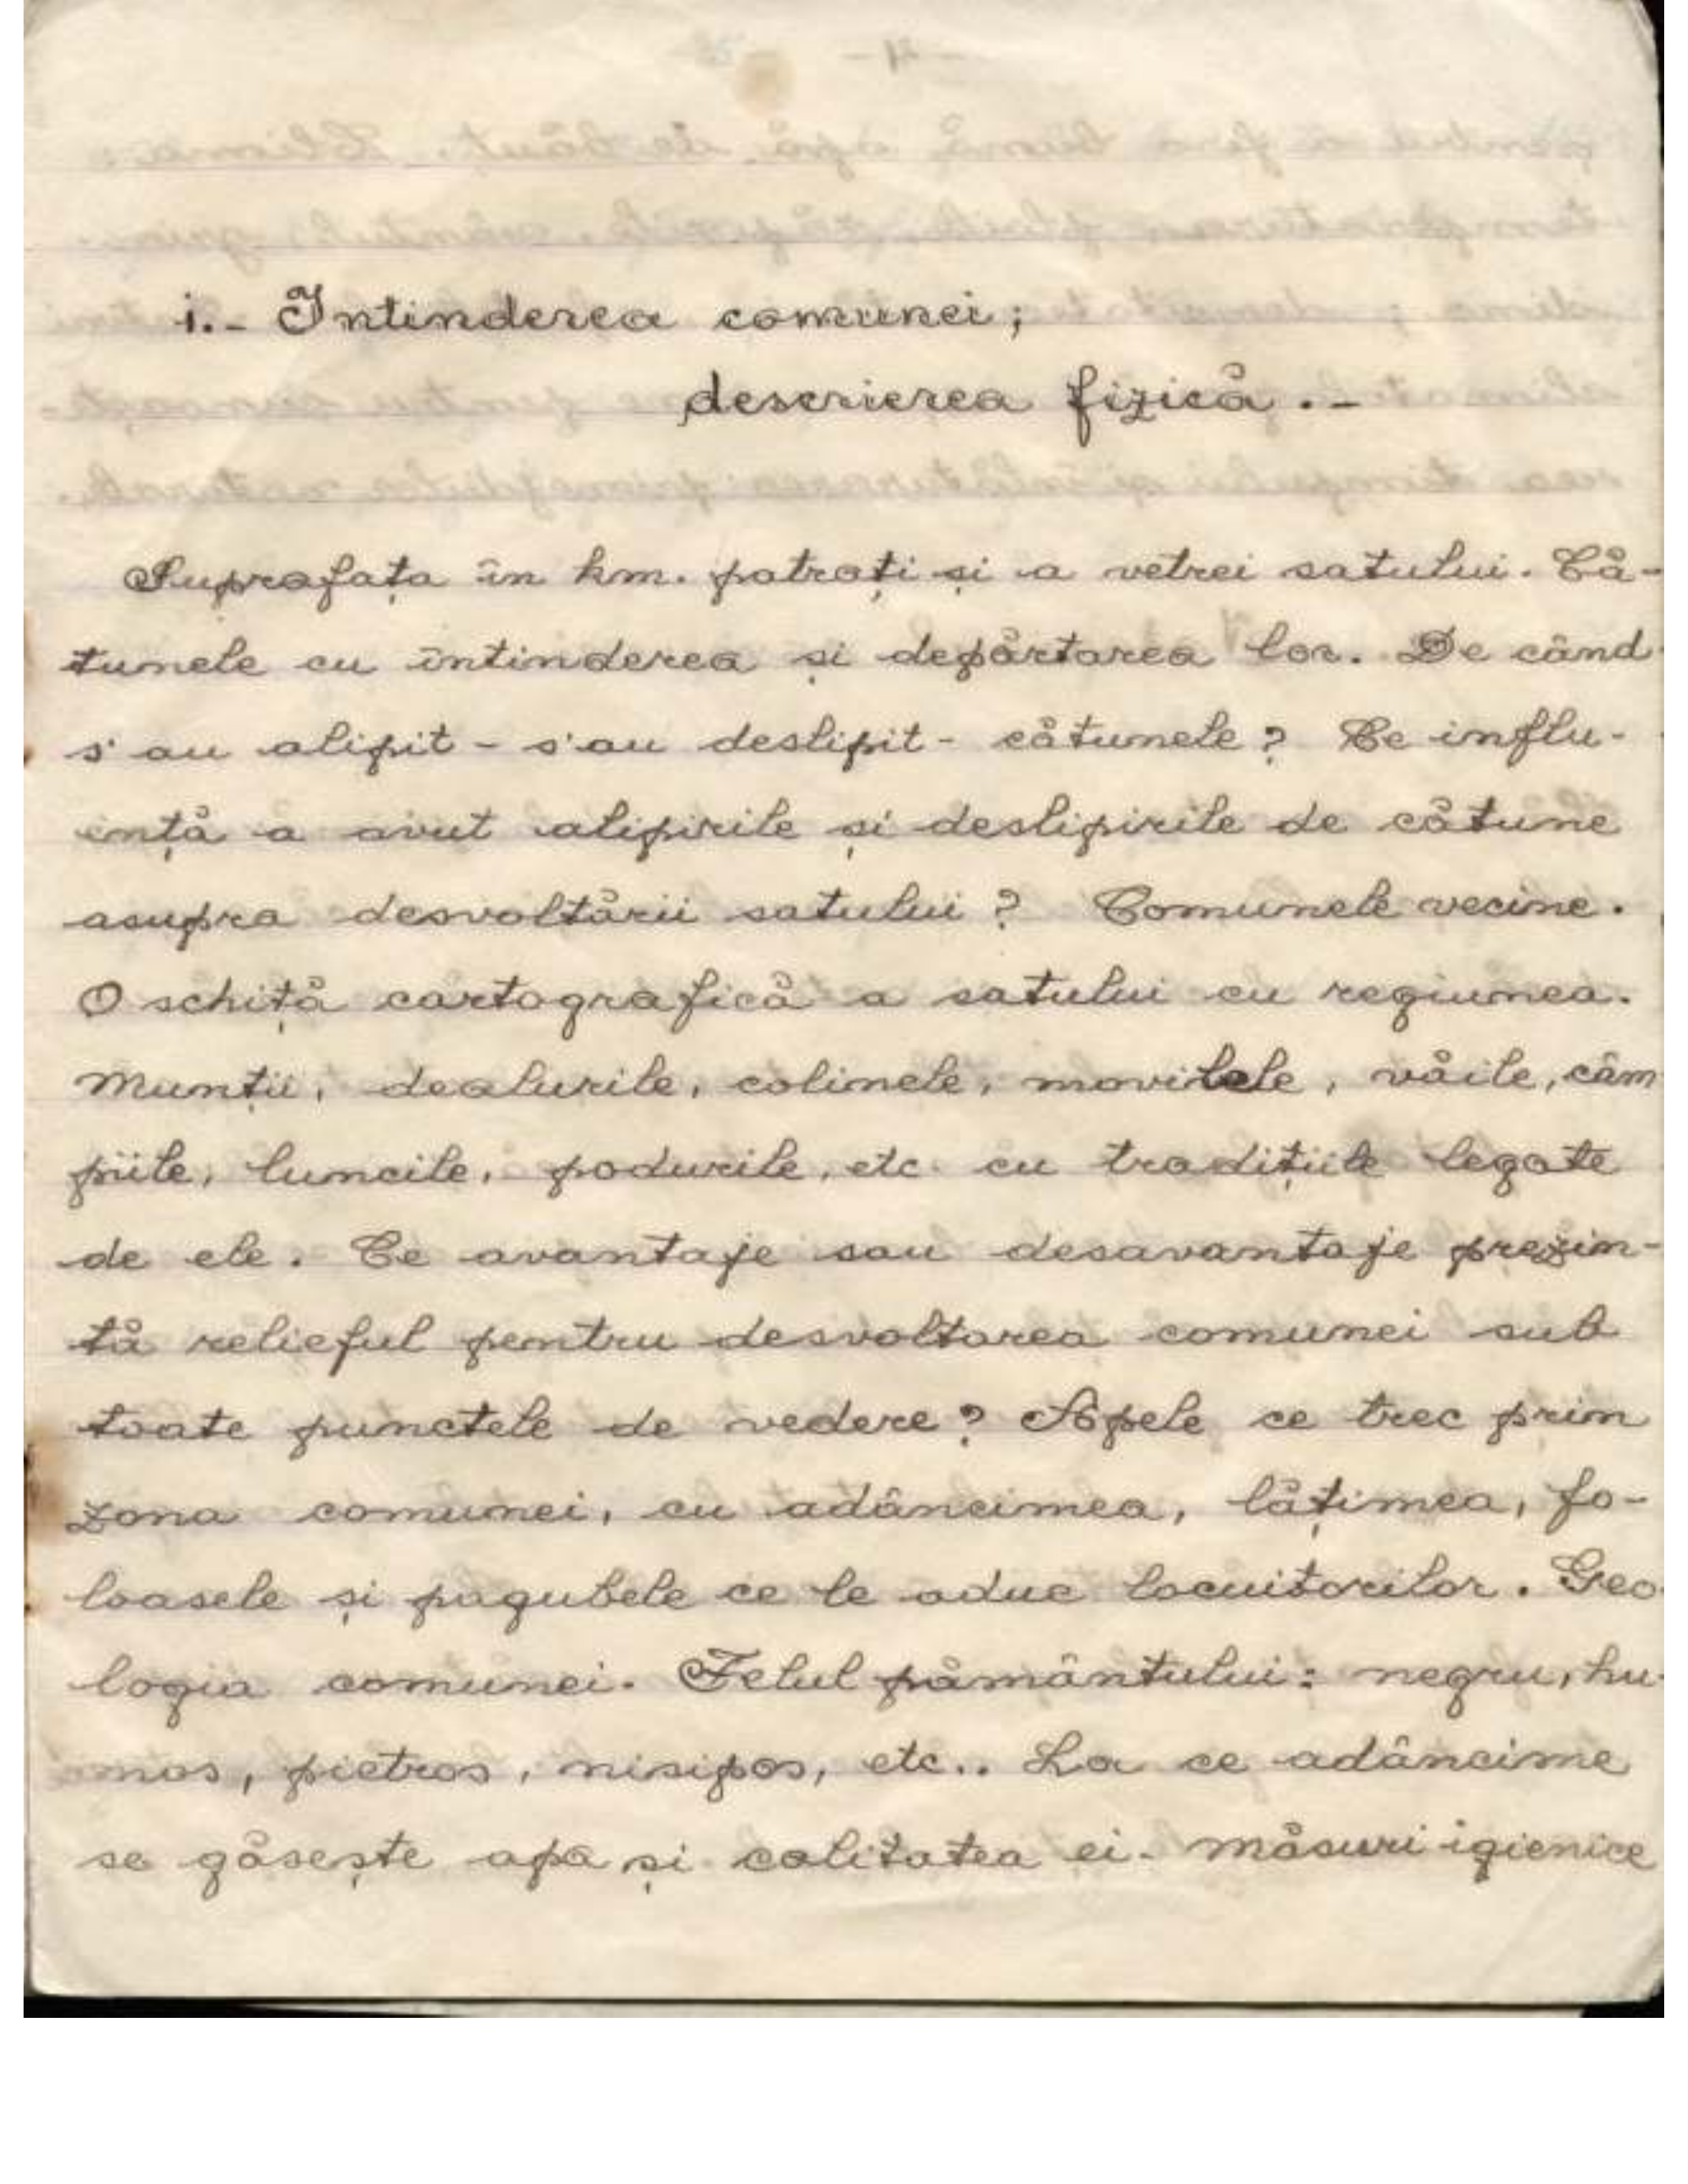 i.- Intinderea comunei;
descrierea fizică.-
Suprafața în km. patrați și a vetrei satului. Că-
tunele cu întinderea și depărtarea lor. De când
s'au alipit - s'au deslipit - cătunele? Ce influ-
ență a avut alipirile și deslipirile de cătune
asupra desvoltării satului? Comunele vecine.
O schiță cartografică a satului cu regiunea.
Munții, dealurile, colinele, movilele, văile, câm
piile, luncile, podurile, etc cu tradițiile legate
de ele. Ce avantaje sau desavantaje prezin-
tă relieful pentru desvoltarea comunei sub
toate punctele de vedere? Apele ce trec prin
zona comunei, cu adâncimea, lățimea, fo-
loasele și pagubele ce le aduc locuitorilor. Geo
logia comunei. Felul pământului: negru, hu-
mos, pietros, nisipos, etc.. La ce adâncime
se găsește apa și calitatea ei. Măsuri igienice